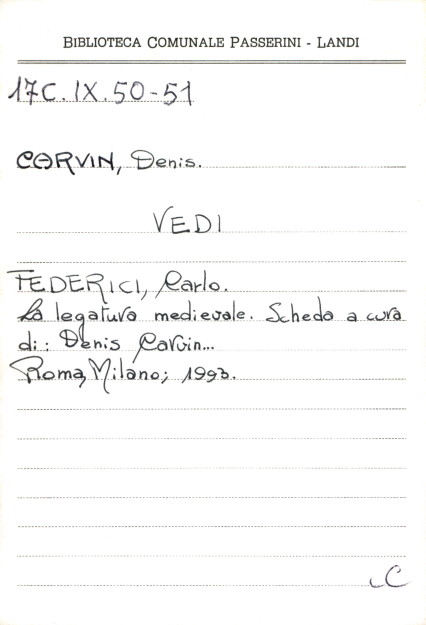 BIBLIOTECA COMUNALE PASSERINI - LANDI
17C. IX. 50-51
CORVIN, Denis.
VEDI
FEDERICI, Carlo.
La legatura medievale. Scheda a cura
di: Denis Corvin...
Roma, Milano; 1993.
C